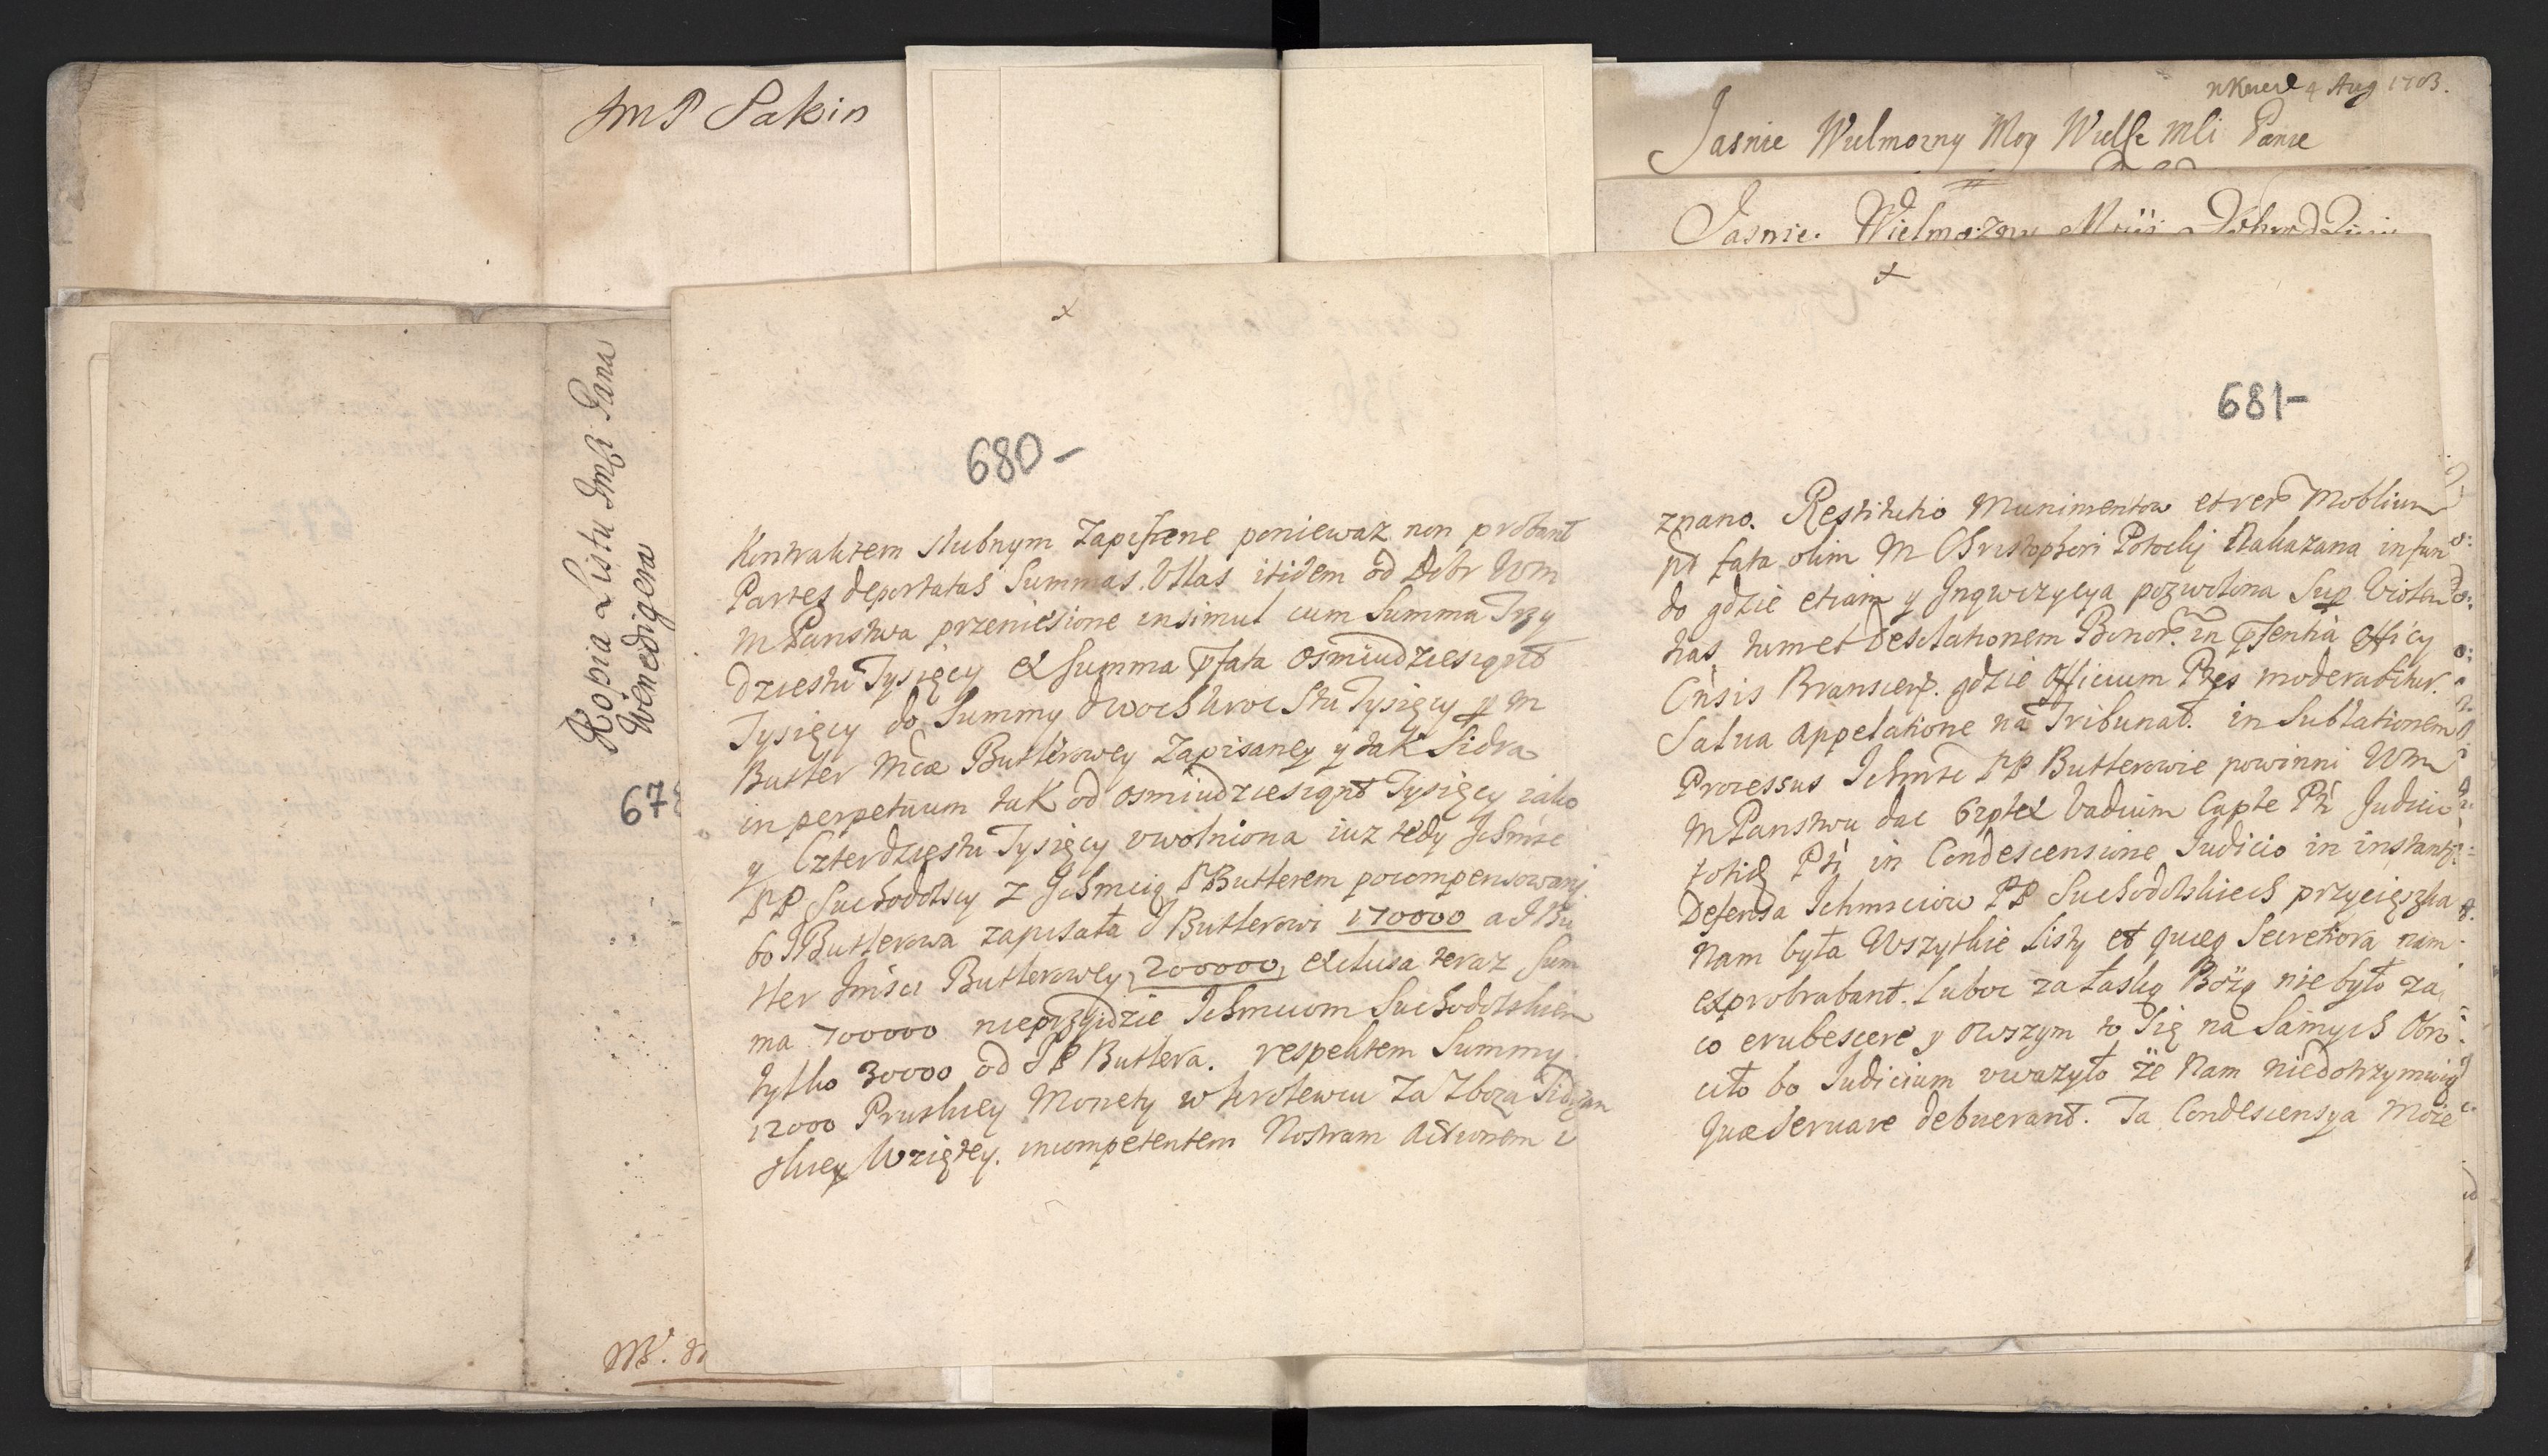 JmP Sakin
4 Aug 1703.
Jasnie Wielmozny Moy Mli Panie
Jasnie Wielmozny
Kopia Listu Jmści Pana
Wenedigera
678
680-
Kontraktem slubnym Zapissene poniewaz non probant
Partes deportatas Summas. Vltas itidem od Dobr Wm
M Panstwa przeniesione insimul cum Summa Trzy
dziestu Tysięcy et Summa pfata osmiudziesiąt
Tysięcy do Summy dwoch kroc Stu Tysięcy p m
Butler Butlerowey Zapisaney y tak Sidra
in perpetuum tak od osmiudziesiąt Tysięcy iako
y Czterdziestu Tysięcy vwolniona iuz tedy Jchmśc
PP Suchodolscy z Jchmcią P Butlerem pocompensowani
bo JButlerowa zapisała J Butlerowi 170000 a J Bu
tler Jmści Butlerowey 200000, exclusa teraz Sum
ma 700000 nieprzyidzie Jchmciom Suchodolskiem
tylko 30000 od J P Butlera. respektem Summy
12000 Pruskiey Monety w krolewcu Za Zboza Sidrzan
skiey Wziętey. incompetentem Nostram Actionem v
681-
znano. Restitutio Munimentow et rer Moblium
pt fata olim M Christophori Potocky Nakazana in fun
do gdzie etiam y Jnqwizycya pozwolona Sup Violen
tias tum et Desolationem Bonor in psentia officy
Cnsis Branscens. gdzie officium Ptes moderabitur.
Salua appelatione na Tribunał. in Sublationem
Processus Jchmśc PP Butlerowie powinni Wm
M Panstwu dac vadium Judicio
in Condescensione Judicio in instanti
Defensa Jchmsciow PP Suchodolskiech przycięzka
Nam była Wszytkie Listy et quæq Secretiora nam
exprobrabant. Luboc za łaską Bożą nie było za
co erubescere y owszym to Się na Samych Obro
ciło bo Judicium vwazyło ze Nam niedotrzymuią
Quæ Servare debuerant. Ta Condescensya Może